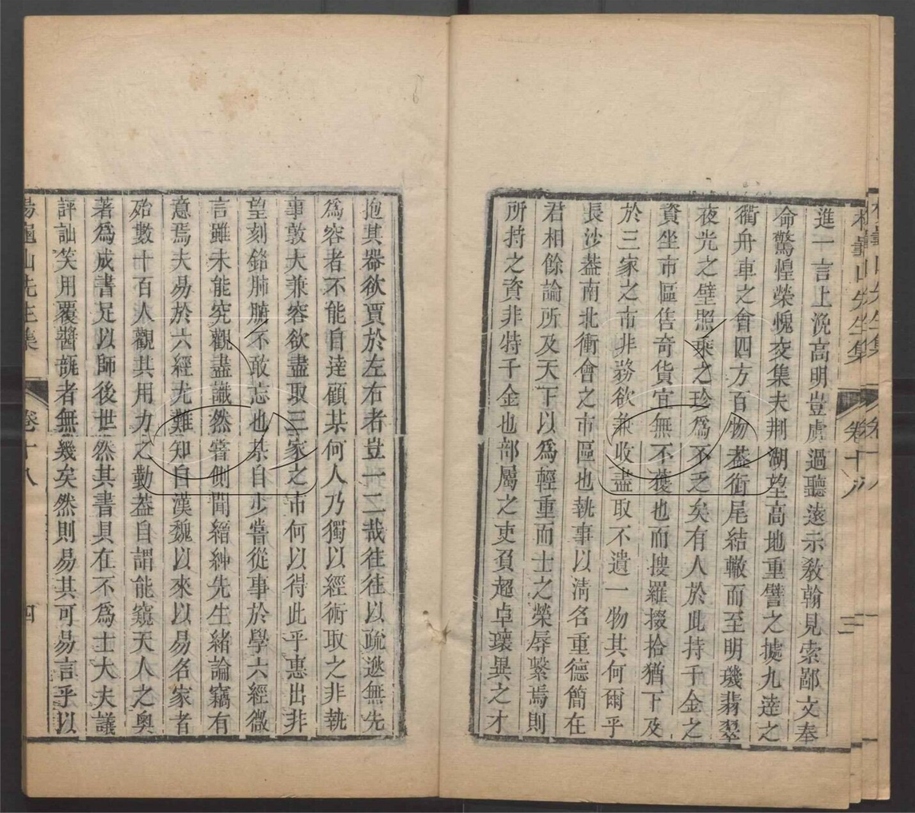 楊龜山先生集
卷十八
三
進一言上浼高明豈虞過聽遠示敎翰見索鄙文奉
命驚惶榮愧交集夫荆湖望高地重譬之墟九逵之
衢舟車之會四方百物葢銜尾結轍而至明璣翡翠
夜光之璧照乘之珍爲不乏矣有人於此持千金之
資坐市區售奇貨宜無不獲也而搜羅掇拾猶下及
於三家之市非務欲兼收盡取不遺一物其何爾乎
長沙葢南北衝會之市區也執事以淸名重德簡在
君相餘論所及天下以爲輕重而士之榮辱繫焉則
所持之資非特千金也部屬之吏負超卓瓌異之才
抱其器欲賈於左右者豈一二哉往往以疏逖無先
爲容者不能自達顧某何人乃獨以經術取之非執
事敦大兼容欲盡取三家之市何以得此乎惠出非
望刻銘肺腑不敢忘也某自少嘗從事於學六經微
言雖未能究觀盡識然嘗側聞縉紳先生緖論竊有
意焉夫易於六經尤難知自漢魏以來以易名家者
殆數十百人觀其用力之勤葢自謂能窺天人之奧
著爲成書足以師後世然其書具在不爲士大夫議
評訕笑用覆醬瓿者無幾矣然則易其可易言乎以
楊龜山先生集
卷十八
四